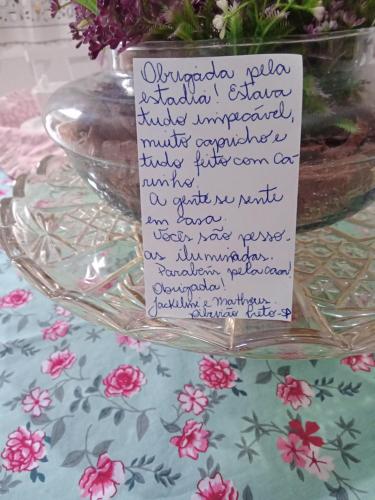 Obrigada pela
estadia! Estava
tudo impecável,
muito capricho e
tudo feito com Ca-
rinho.
A gente se sente
em casa.
Vocês são pesso-
as iluminadas.
Parabéns pela casa!
Obrigada!
Jackelini e Matheus.
Ribeirão Preto-SP